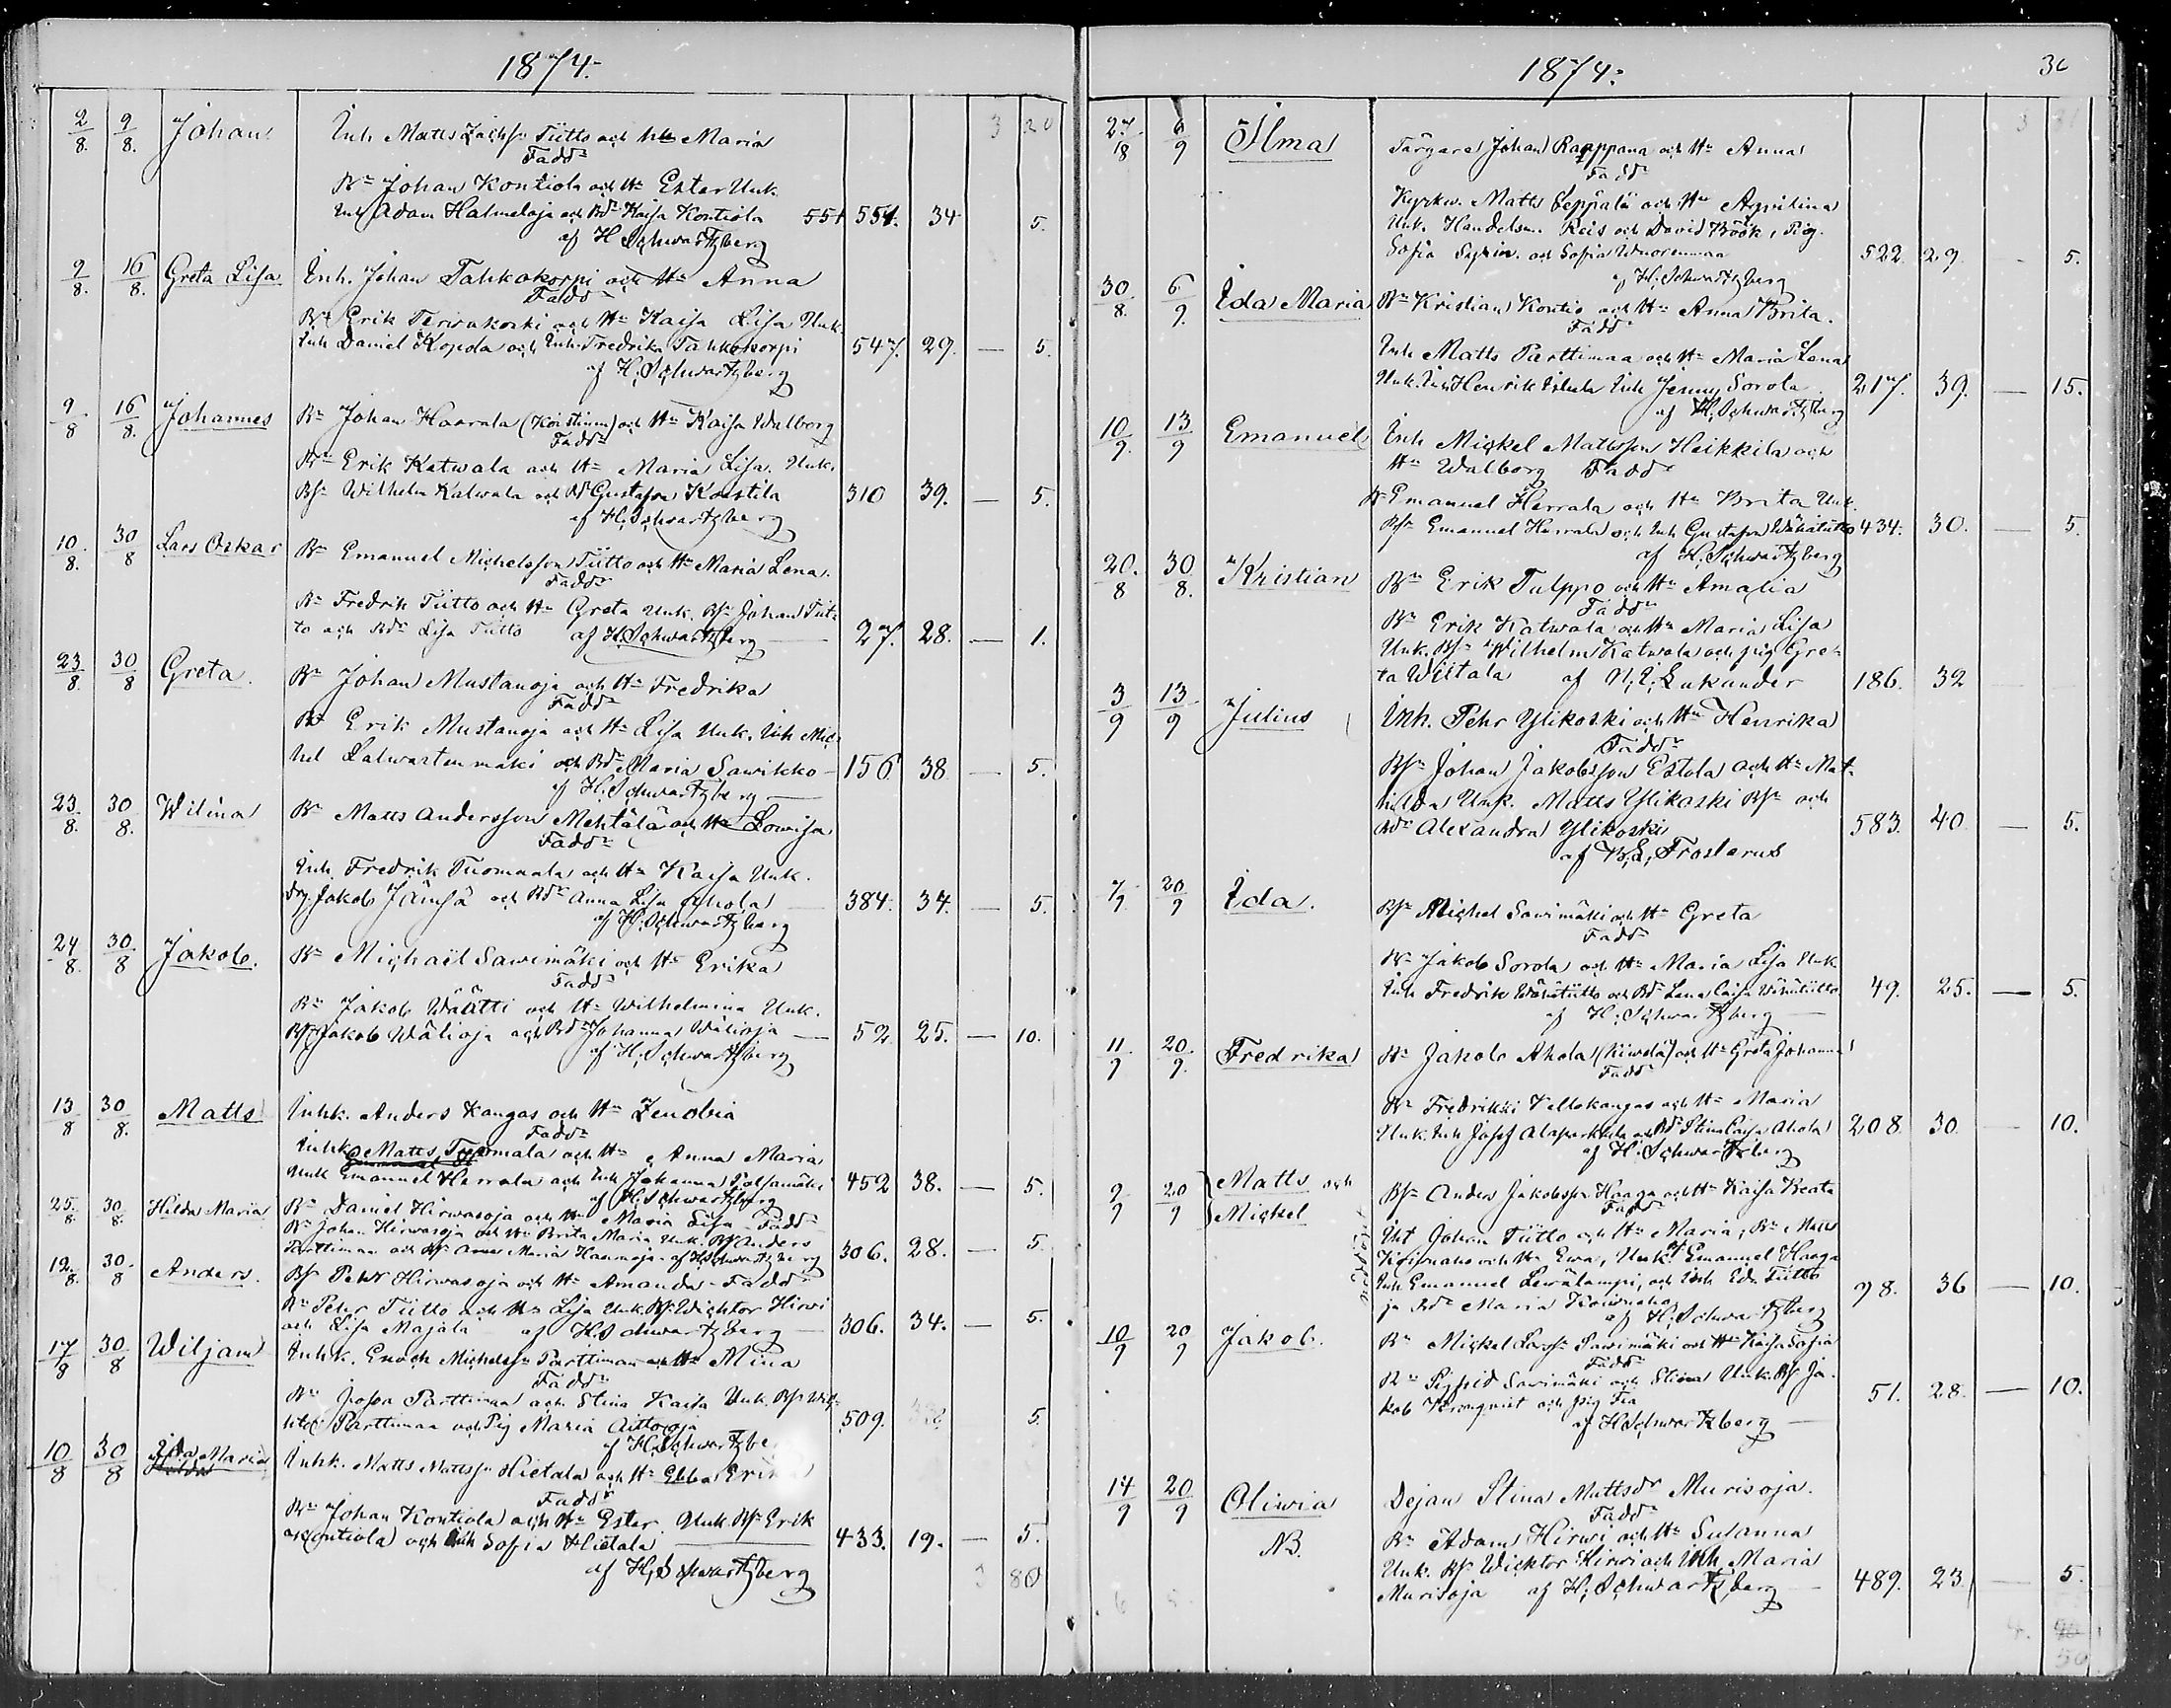 1874.
2/8. 9/8. Johan Inh Matts Zachsn Tiitto och hu Maria 3 20
Faddr
Bn Johan Kontiola och Hu Ester Unk.
Inh Adam Halmeloja och Bdr Kaisa Kontiola 551 551. 34 5.
af H Schwartzberg
9/8. 16/8. Greta Lisa Inh. Johan Tahkokorpi och Hu Anna
Faddr
Bn Erik Terwakoski och Hu Kaisa Lisa Unk.
Inh Daniel Kopola och Inh. Fredrika Tahkokorpi 547. 29. — 5.
af H. Schwartzberg
9/8 16/8. Johannes Bn Johan Haarala (Koistinen) och Hu Kaisa Walborg
Faddr
Bn Erik Katwala och Hu Maria Lisa. Unk.
Bsn Wilhelm Katwala och Bdr Gustafva Koistila 310 39. — 5.
af H. Schwartzberg
10/8. 30/8 Lars Oskar Bn Emanuel Michelsson Tiitto och Hu Maria Lena.
Faddr
Bn Fredrik Tiitto och Hu Greta Unk. Bsn Johan Tiit-
to och Bdr Lisa Tiitto af H. Schwartzberg — 27. 28. — 1.
23/8 30/8 Greta. Bn Johan Mustanoja och Hu Fredrika
Faddr
Bn Erik Mustanoja och Hu Lisa Unk. Inh Mic-
hel Lalwastenmäki och Bdr Maria Sawikko — 156 38 — 5.
af H. Schwartzberg —
23/8. 30/8. Wilina Bn Matts Andersson Mehtälä och Hu Lowisa
Faddr
Inh. Fredrik Tuomaala och Hu Kaisa Unk.
Drg. Jakob Jämsä och Bdr Anna Lisa Ahola 384. 34. — 5.
af H. Schwartzberg
24/8. 30/8 Jakob. Bn Michaël Sawimäki och Hu Erika
Faddr
Bn Jakob Wäätti och Hu Wilhelmina Unk.
Bsn Jakob Wälioja och Bdr Johanna Wälioja — 52. 25. — 10.
af H. Schwartzberg
13/8 30/8. Matts Inhk. Anders Kangas och Hu Zenobia
Faddr
Inhk Matts Tuomala och Hu Anna Maria
Unk Emanuel Herrala och Inh Johanna 452 38. — 5.
af H. Schwartzberg
25/8. 30/8. Hilda Maria Bn Daniel Hirwasoja och Hu Maria Lisa - Faddr
Bn Johan Hirwasoja och Hu Brita Maria Unk. Bsn Anders
Parttimaa och Anna Maria af H Schwartzberg 306. 28. — 5.
12/8. 30/8 Anders. Bsn Pehr Hirwasoja och Hu Amanda - Faddr
Bn Pehr Tiitto och Hu Lisa Unk. Bsn Wichtor Hirwi
och Lisa Majala — af H. Schwartzberg — 306. 34. — 5.
17/8 30/8 Wiljam Inhk. Enoch Michelssn Parttimaa och Hu Mina
Faddr
Bn Josva Parttimaa och Stina Kaisa Unk. Bsn Wil-
Parttimaa och Pig Maria Aittooja 509. 5.
af H. Schwartzbe
10/8 30/8 Ida Maria Inhk. Matts Mattssn Hietala och Hu Ebba Erika
Faddr
Bn Johan Kontiola och Hu Ester. Unk. Bsn Erik
Kontiola och Inh Sofia Hietala — 433. 19. — 5.
af H. Schwartzberg 3 80
1874. 36
27/8 6/9 Ilma Färgare Johan Raappana och Hu Anna 3 31
Fadd
Kyrkw. Matts Seppälä och Hu Agrilina
Unk. Handelsm. Reis och David Böök, Pig.
Sofia och Sofia Wuorenmaa 522. 29. - 5.
af H. Schwartzberg
30/8. 6/9. Ida Maria Bn Kristian Kontio och Hu Anna Brita.
Faddr
Inh Matts Parttimaa och Hu Maria Lena
Unk. Inh Henrik Inh Jenny Sorola 217. 39. — 15.
af H. Schwartzberg
10/9. 13/9 Emanuel Inh Mickel Mattsson Heikkila och
Hu Walborg Faddr
Bn Emanuel Herrala och Hu Brita Unk.
Bsn Emanuel Herrala och Inh Gustafva Wähätiitto 434. 30. — 5.
af H. Schwartzberg
20/8 30/8. Kristian Bn Erik Tulppo och Hu Amalia
Faddr
Bn Erik Katwala och Hu Maria Lisa
Unk. Bsn Wilhelm Katwala och pig Gre-
ta Wiitala af N. I. Lukander 186. 32
3/9 13/9 Julius Inh. Pehr Ylikoski och Hu Henrika
Faddr
Bsn Johan Jakobsson Estola och Hu Mat-
hilda Unk. Matts Ylikoski Bsn och
Bdr Alexandra Ylikoski 583. 40 — 5.
af B. E. Frosterus
7/9 20/9 Ida. Bsn Michel Sawimäki och Hu Greta
Faddr
Bn Jakob Sorola och Hu Maria Lisa Unk
Inh Fredrik Wähätiitto och Bdr Lena Caisa Wähätiitto 49. 25. — 5.
af H. Schwartzberg —
11/9 20/9. Fredrika Bn Jakob Ahola (Kiwelä) och Hu Greta Johanna
Faddr
Bn Fredrikki Vellokangas och Hu Maria
Unk. Inh Josef Alaparkkila och Bdr Stina Caisa Ahola 208. 30. — 10.
af H. Schwartzberg
9/9 20/9 Matts och Bsn Anders Jakobsson Haaga och Hu Kaisa Beata
Mickel Faddr
nöddöpt Inh Johan Tiitto och Hu Maria, Bn Matts
Kosunaho och Hu Ewa, Unk. Emanuel Haaga
Inh Emanuel Lewälampi, och Inh Eda Tiitto
ja Bdr Maria 98. 36 — 10.
af H. Schwartzberg
10/9 20/9 Jakob. Bn Mickel Larssn Sawimäki och Hu Kaisa Sofia
Faddr
Bn Sigfrid Sawimäki och Stina Unk. Bsn Ja-
kob Kronqvist och pig Fia 51. 28. — 10.
af H Schwartzberg —
14/9 20/9 Oliwia Dejan Stina Mattsdr Murisoja.
Faddr
NB. Bn Adam Hirwi och Hu Susanna
Unk. Bsn Wicktor Hirwi och Inh Maria
Murisoja af H. Schwartzberg — 489. 23. — 5.
4. 50